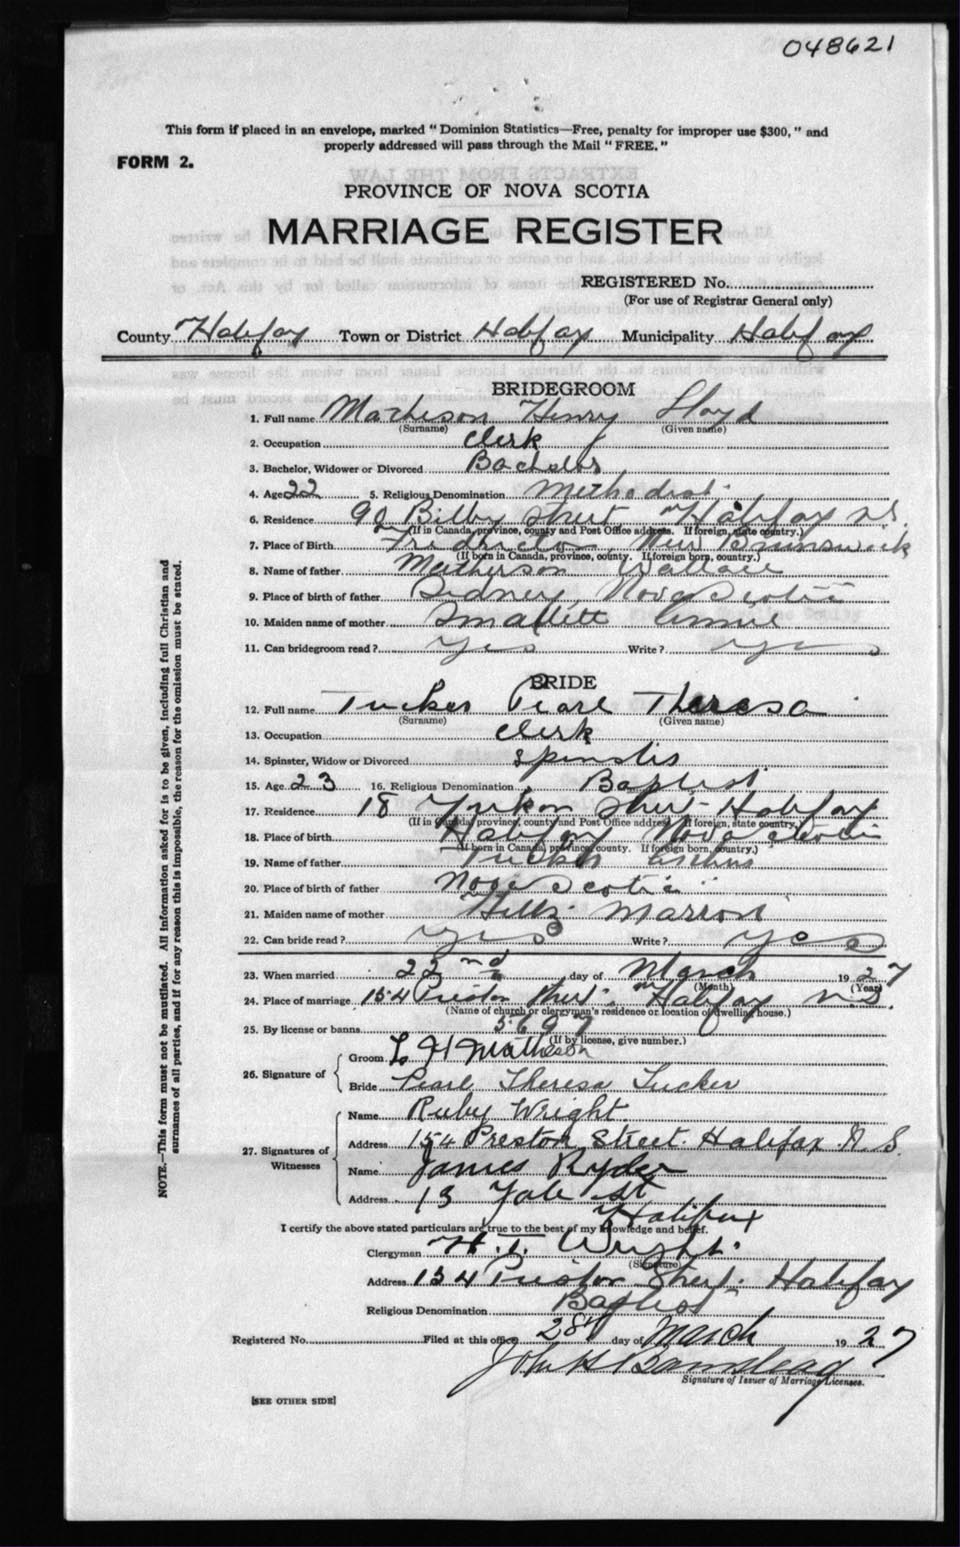 048621
This form if placed in an envelope, marked "Dominion Statistics—Free, penalty for improper use $300," and
properly addressed will pass through the Mail "FREE."
FORM 2.
PROVINCE OF NOVA SCOTIA
MARRIAGE REGISTER
REGISTERED No.
(For use of Registrar General only)
County Halifax Town or District Halifax Municipality Halifax
BRIDEGROOM
1. Full name Matheson Henry Lloyd
(Surname) (Given name)
2. Occupation Clerk
3. Bachelor, Widower or Divorced Bachelor
4. Age 22 5. Religious Denomination Methodist
6. Residence 90 Bilby Street Halifax N.S.
(If in Canada, province, county and Post Office address. If foreign, state country.)
7. Place of Birth Fredericton New Brunswick
(If born in Canada, province, county. If foreign born, country.)
8. Name of father Matheson Wallace
9. Place of birth of father Sidney, Nova Scotia
10. Maiden name of mother Smallett Annie
11. Can bridegroom read? yes Write? yes
BRIDE
12. Full name Tucker Pearl Theresa
(Surname) (Given name)
13. Occupation Clerk
14. Spinster, Widow or Divorced Spinster
15. Age 23 16. Religious Denomination Baptist
17. Residence 18 Yukon Street Halifax
(If in Canada, province, county and Post Office address. If foreign, state country.)
18. Place of birth Halifax Nova Scotia
(If born in Canada, province, county. If foreign born, country.)
19. Name of father Tucker
20. Place of birth of father Nova Scotia
21. Maiden name of mother Marion
22. Can bride read? yes Write? yes
23. When married 22nd day of March 1927
(Month) (Year)
24. Place of marriage 154 Preston Street Halifax N.S.
(Name of church or clergyman's residence or location of dwelling house.)
25. By license or banns 5697
(If by license, give number.)
26. Signature of
Groom L H Matheson
Bride Pearl Theresa Tucker
27. Signatures of Witnesses
Name Ruby Wright
Address 154 Preston Street. Halifax N.S.
Name James Ryder
Address 13 Yale St
Halifax
I certify the above stated particulars are true to the best of my knowledge and belief.
Clergyman H. T. Wright
(Signature)
Address 154 Preston Street. Halifax
Religious Denomination Baptist
Registered No. Filed at this office 28th day of March 1927
John H Barnstead
Signature of Issuer of Marriage Licenses.
[SEE OTHER SIDE]
NOTE.—This form must not be mutilated. All information asked for is to be given, including full Christian and
surnames of all parties, and if for any reason this is impossible, the reason for the omission must be stated.